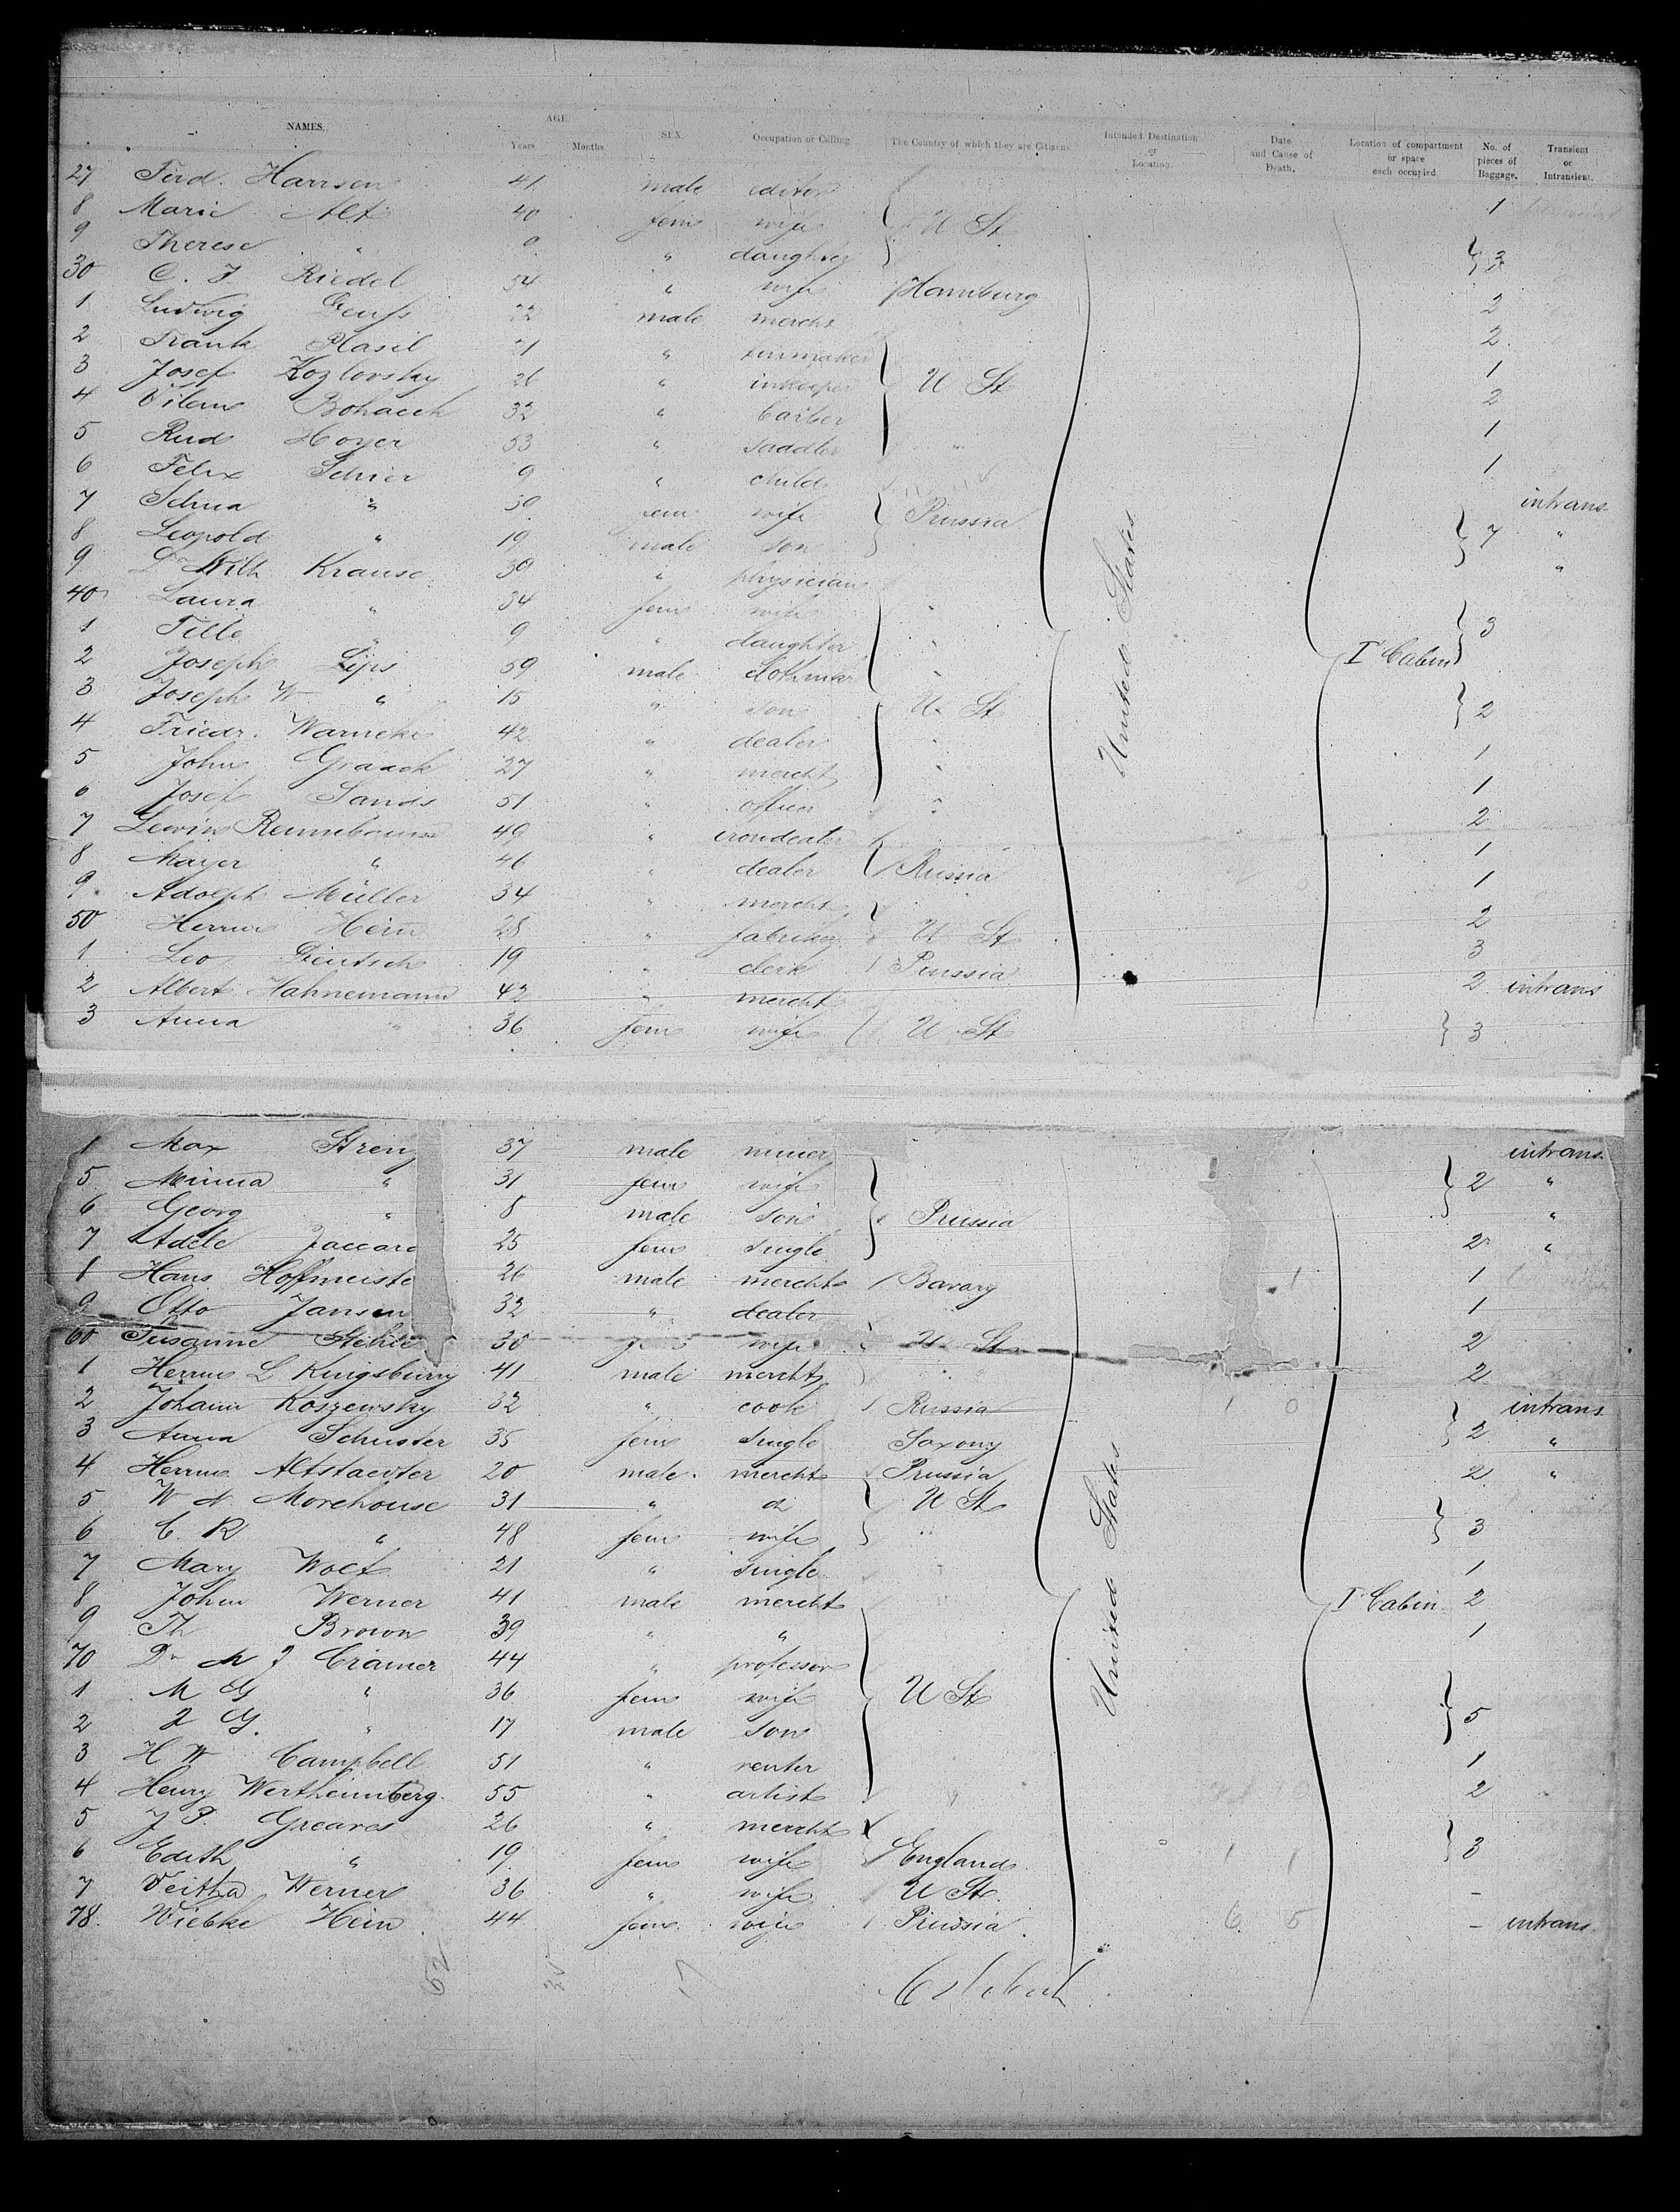 NAMES. AGE. Years. Months. SEX. Occupation or Calling The Country of which they are Citizens. Intended Destination or Location. Date and Cause of Death. Location of compartment or space each occupied. No. of pieces of Baggage. Transient or Intransient.
27 Ferd. Harrsen 41 male editor 1
8 Marie Alt 40 fem wife U St
9 Therese " 9 " daughter 3
30 C. F Riedel 54 " wife Hamburg 2
1 Ludwig 22 male mercht 2
2 Frank Plasil 21 " 1
3 Josef Kozlovsky 26 " inkeeper U St 2
4 Vilem Bohacek 32 " barber 1
5 Rud Hoyer 53 " saddler 1
6 Felix Schier 9 " child intrans
7 Selma " 39 fem wife Prussia 7 "
8 Leopold " 19 male son "
9 Dr Wilh Krause 39 " physician
40 Laura " 34 fem wife " 3
1 Tille " 9 " daughter " I Cabin
2 Joseph Lips 59 male "
3 Joseph W " 15 " son U St 2
4 Friedr. Warneke 42 " dealer "
5 John 27 " mercht " 1
6 Josef Sands 51 " officer " 1
7 Lewin 49 " irondealer 2
8 Mayer " 46 " dealer Russia 1
9 Adolph Müller 34 " mercht 1
50 Herrm Hein 28 " U St 2
1 Leo 19 " clerk Prussia 3
2 Albert Hahnemann 42 " mercht 2 intrans
3 Anna " 36 fem wife U St 3
United States
1 Max Streng 37 male miner intrans
5 Minna " 31 fem wife 2 "
6 Georg " 8 male son Prussia "
7 Adele Jaccard 25 fem single 2 "
8 Hans Hoffmeiste 26 male mercht Bavary 1
9 Otto Jansen 32 " dealer 1
60 Susanne 30 fem wife U St 2
1 Herrm L Kingsburry 41 male mercht 2
2 Johann Koszewsky 32 " cook Russia 1 0 intrans
3 Anna Schuster 35 fem single Saxony 2 "
4 Herrm Altstaedter 20 male mercht Prussia 2 "
5 W N Morehouse 31 " do U St
6 C. R " 48 fem wife 3
7 Mary Wolf 21 " single 1
8 John Werner 41 male mercht I Cabin 2
9 Th Brown 39 " " 1
70 Dr M J Cramer 44 " professor
1 M G " 36 fem wife U St
2 J G. " 17 male son 5
3 H W Campbell 51 " renter 1
4 Henry Wertheimberg 55 " artist 2
5 J P. Greaves 26 " mercht
6 Edith " 19 fem wife England 1 1 3
7 Werner 36 " wife U St. –
78. Wiebke Hein 44 fem wife Prussia 6 5 – intrans.
United States
62